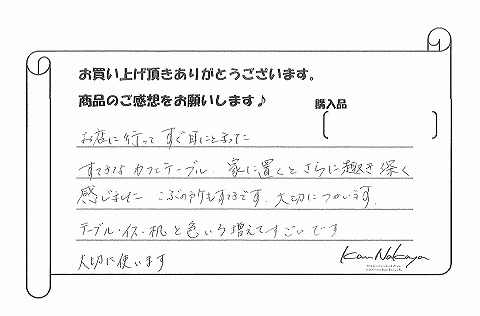 お買い上げ頂きありがとうございます。
商品のご感想をお願いします♪
購入品
お店に行って すぐ目にとまった
すてきな カフェテーブル. 家に置くとさらに趣き深く
感じました こぶのアケもすてきです. 大切につかいます.
テーブル・イス・机と色いろ増えてすごいです
大切に使います
Kan Nakaya